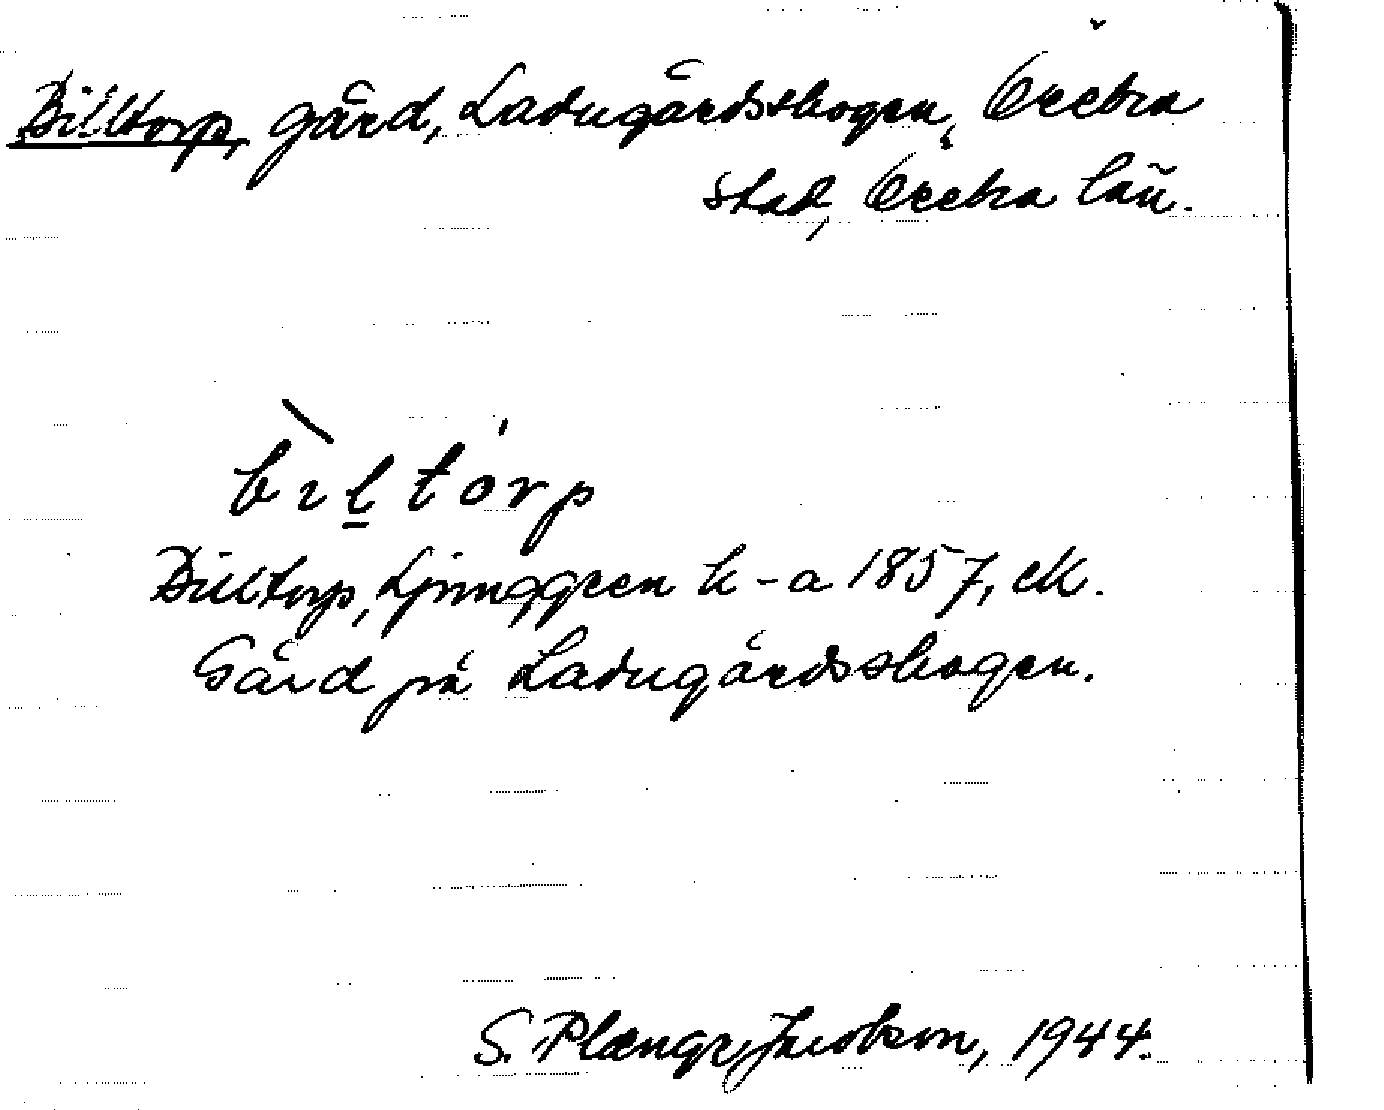 Billtorp, gård, Ladugårdsskogen, Örebro
stad, Örebro län.
bìl̲tórp
Billtorp, Ljunggren k-a 1857, ek.
Gård på Ladugårdsskogen.
S. Plænge Jacobson, 1944.